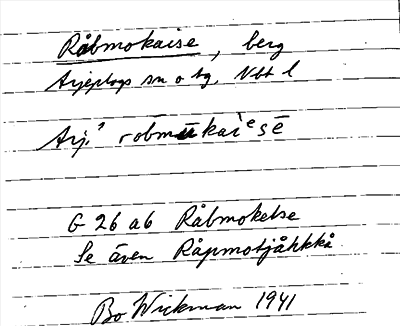 Råbmokaise, berg
Arjeplogs sn o tg, Vbt l
Arj.³ robmūkaiᵉsē
G 26 a6 Råbmokelse
Se även Råpmotjåhkkå
Bo Wickman 1941